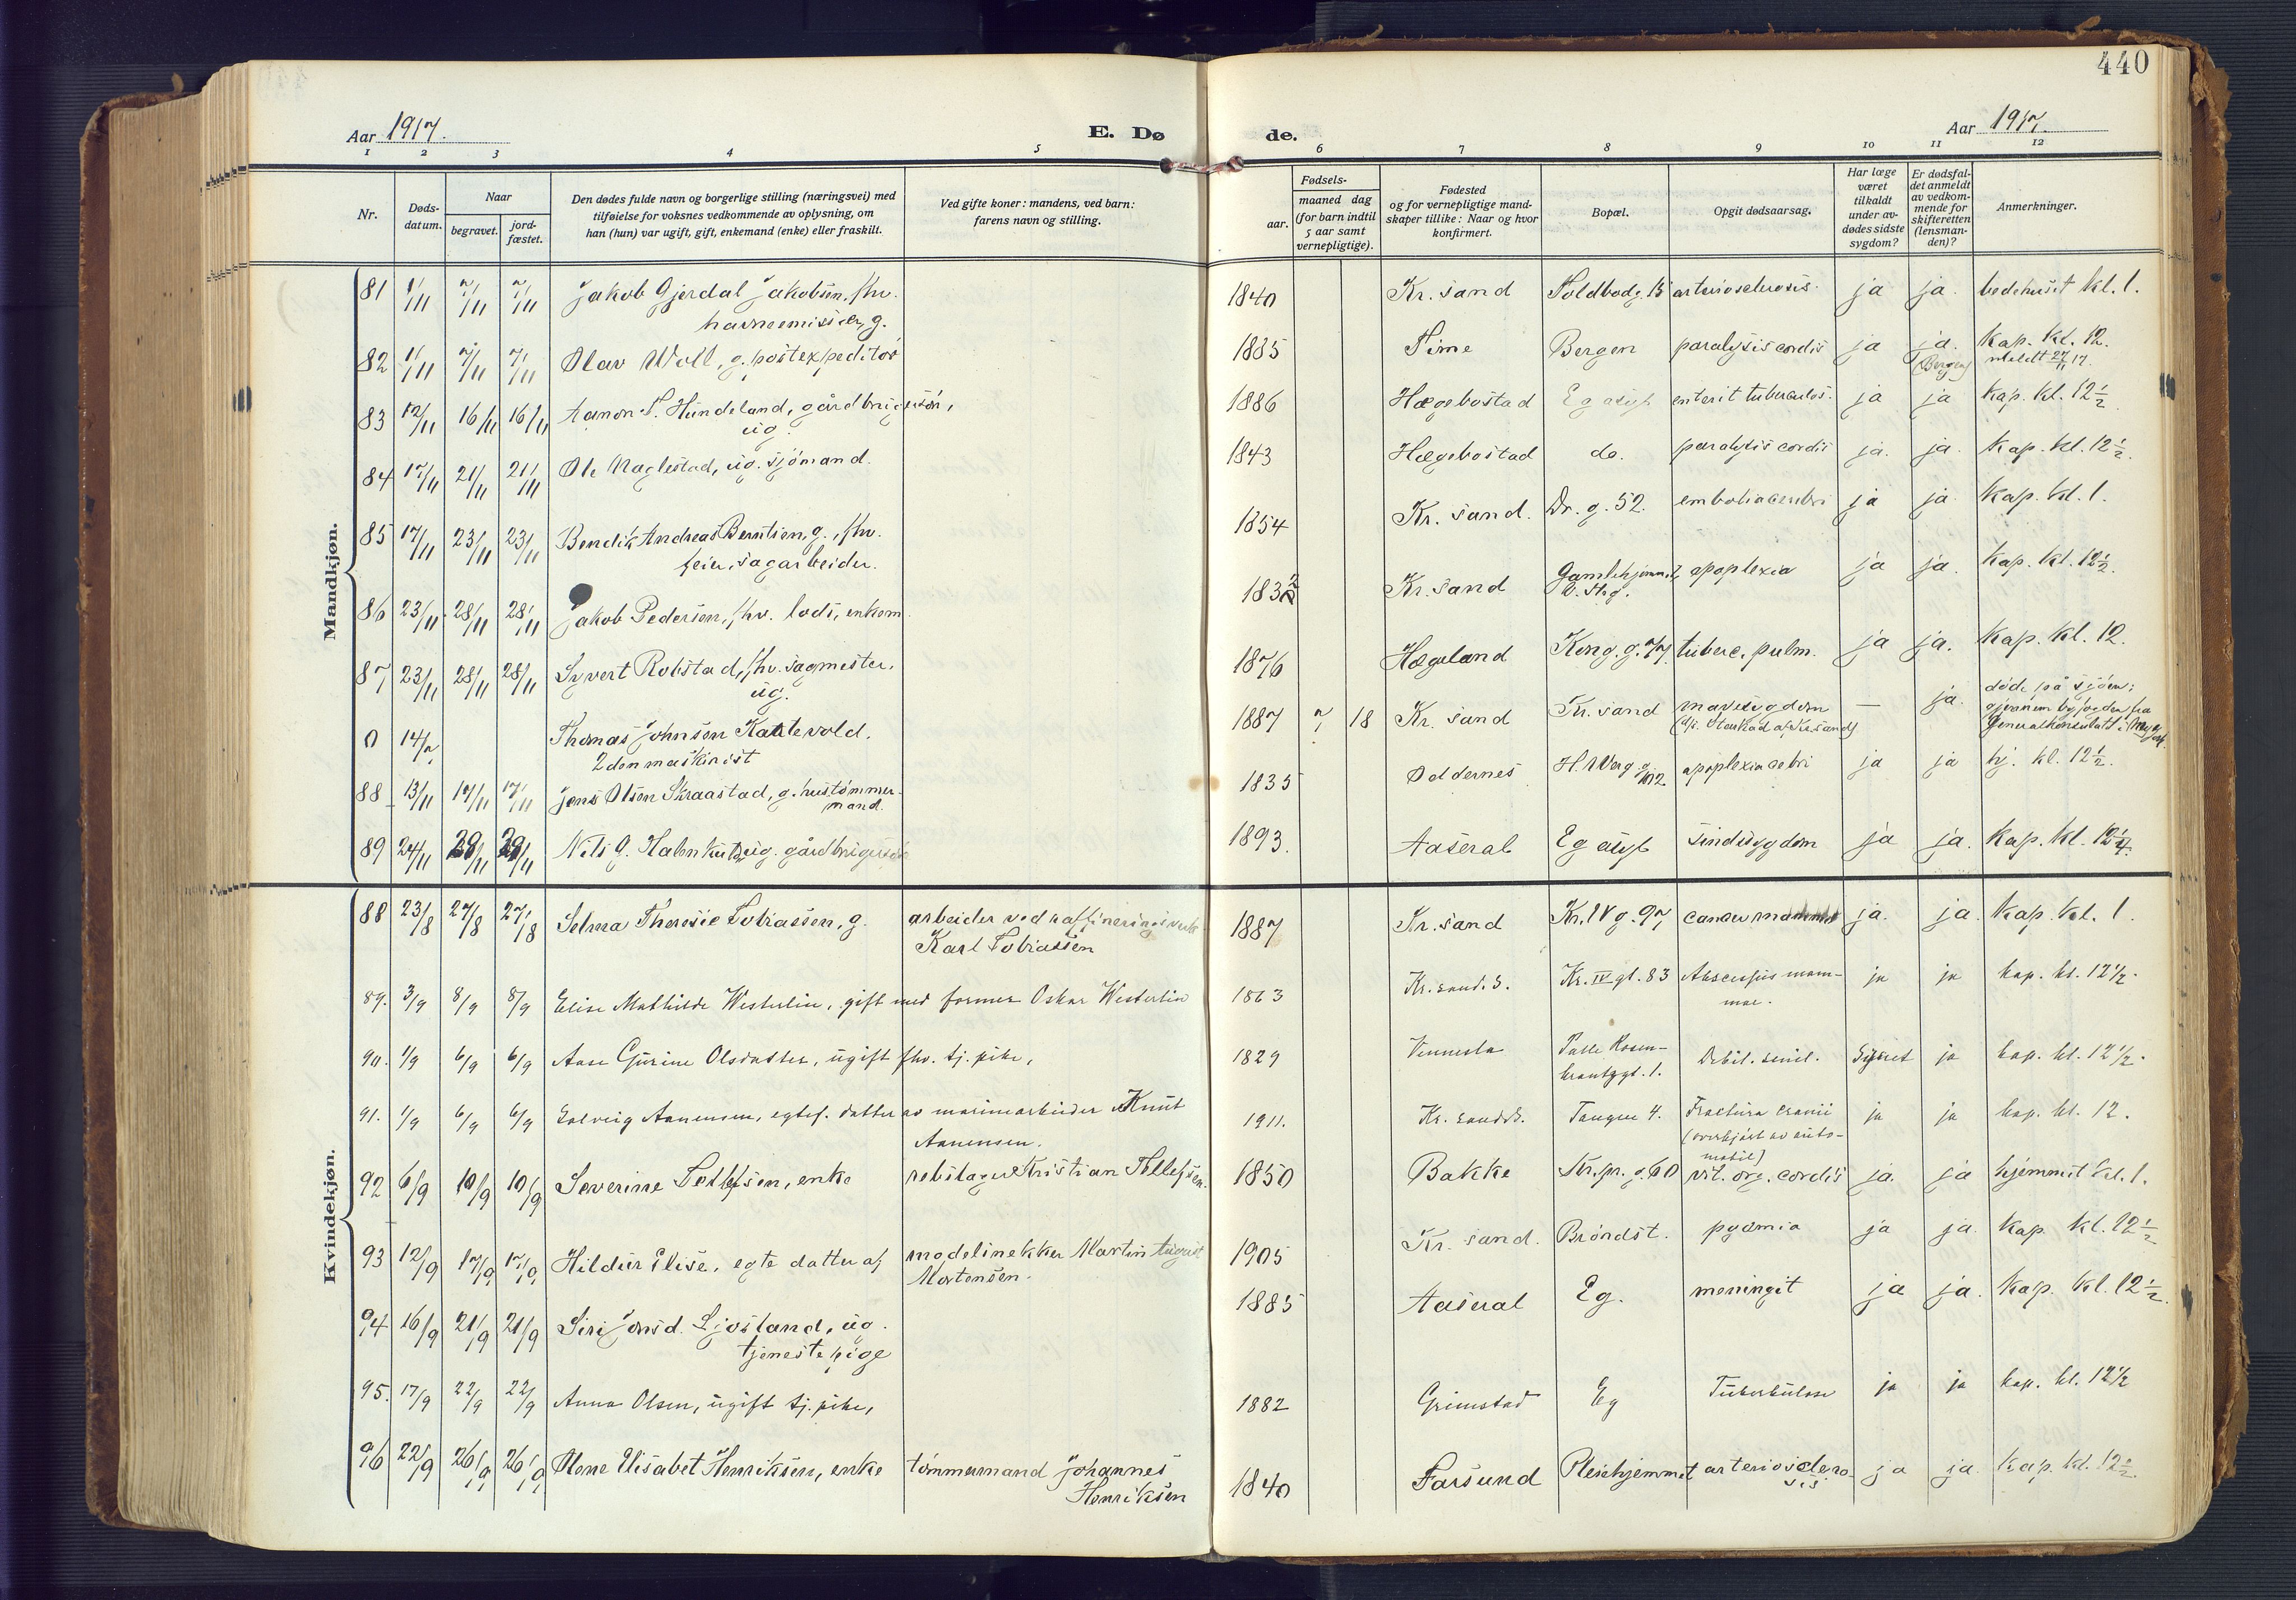 440
Aar 1917.
E. Dø
de.
Aar 1917.
1 2 3 4 5 6 7 8 9 10 11 12
Nr.
Døds-
datum.
Naar
begravet.
jord-
fæstet.
Den dødes fulde navn og borgerlige stilling (næringsvei) med
tilføielse for voksnes vedkommende av oplysning, om
han (hun) var ugift, gift, enkemand (enke) eller fraskilt.
Ved gifte koner: mandens, ved barn:
farens navn og stilling.
Fødsels-
aar.
maaned dag
(for barn indtil
5 aar samt
vernepligtige).
Fødested
og for vernepligtige mand-
skaper tillike: Naar og hvor
konfirmert.
Bopæl.
Opgit dødsaarsag.
Har læge
været
tilkaldt
under av-
dødes sidste
sygdom?
Er dødsfal-
det anmeldt
av vedkom-
mende for
skifteretten
(lensman-
den)?
Anmerkninger.
Mandkjøn.
81 1/11 7/11 7/11 Jakob Gjerdal Jakobsen, fhv. 1840 Kr.sand Toldbodg. 15 arteriosclerosis. ja ja. bedehuset kl. 1.
havnemisser, g.
82 1/11 7/11 7/11 Olav Woll, g. postexpeditör 1835 Time Bergen paralysis cordis ja ja. Kap. kl. 12.
(Bergen) meldt 27/11 17.
83 12/11 16/11 16/11 Aanon T. Hundeland, gårdbrugersön, 1886 Hægebostad Eg asyl enterit tuberculos. ja ja Kap. kl. 12 1/2.
ug.
84 17/11 21/11 21/11 Ole Naglestad, ug. sjömand. 1843 Hægebostad do. paralysis cordis ja. ja. Kap. kl. 12 1/2.
85 17/11 23/11 23/11 Bendik Andreas Berntsen, g., fhv. 1854 Kr.sand. Dr. g. 52. embolia cerebri ja ja. Kap. kl. 1.
feier, sagarbeider.
86 23/11 28/11 28/11 Jakob Pedersen, fhv. lods, enkem. 1832 Kr.sand apoplexia ja ja. Kap. kl. 12 1/2.
87 23/11 28/11 28/11 Syvert Robstad, fhv. sagmester, 1876 Hægeland Kong. g. 77 tuberc. pulm. ja ja. Kap. kl. 12.
ug.
0 14/7 Thomas Johnsen Kattevold, 1887 7 18 Kr.sand Kr.sand mavesygdom — ja. döde på sjöen;
2den maskinist
88 13/11 17/11 17/11 Jens Olsen Skraastad, g. hustömmer- 1835 Oddernes H. Werg. g. 102 apoplexia cebri ja ja hj. kl. 12 1/2.
mand.
89 24/11 29/11 29/11 Nils G. ug. gårdbrugersön 1893. Aaseral Eg asyl sindssygdom ja ja. Kap. kl. 12 1/4.
Kvindekjøn.
88 23/8 27/8 27/8 Selma Theresie Tobiassen, g. arbeider ved raffineringsverk 1887 Kr.sand Kr. IV g. 97 cancer mammae ja. ja. Kap. kl. 1.
Karl Tobiassen
89. 3/9 8/9 8/9 Elise Mathilde Westerlin, gift med former Oskar Westerlin 1863 Kr.sand. S. Kr. IV gt. 83 Abscessus mam- ja ja kap. kl. 12 1/2.
mae.
90. 1/9 6/9 6/9 Aase Gurine Olsdatter, ugift fhv. tj. pike, 1829 Vennesla Palle Rosen- Debil. senil. ja kap. kl. 12 1/2.
krantzgt. 1.
91. 1/9 6/9 6/9 Solveig Aanensen, egtef. datter av marinearbeider Knut 1911. Kr.sand S. Tangen 4. Fractura cranii ja ja kap. kl. 12.
Aanensen. (overkjört av auto-
mobil)
92 6/9 10/9 10/9 Severine Tellefsen, enke rebslager Kristian Tellefsen. 1850 Bakke Kr. pr. g. 60 vit. org. cordis ja. ja hjemmet kl. 1.
93 12/9 17/9 17/9 Hildur Elise, egte datter af modelinekker Martin August 1905 Kr.sand. Bröndst. pyæmia ja ja. Kap. kl. 12 1/2
Mortensen.
94 16/9 21/9 21/9 Siri Jonsd. Ljosland, ug. 1885 Aaseral Eg. meningit ja ja. Kap. kl. 12 1/2.
tjenestepige
95. 17/9 22/9 22/9 Anna Olsen, ugift tj. pike, 1882 Grimstad Eg Tuberkulose ja ja kap. kl. 12 1/2
96 22/9 26/9 26/9 Olene Elisabet Henriksen, enke tömmermand Johannes 1840 Farsund Pleiehjemmet arteriosclero- ja ja. Kap. kl. 12 1/2.
Henriksen sis